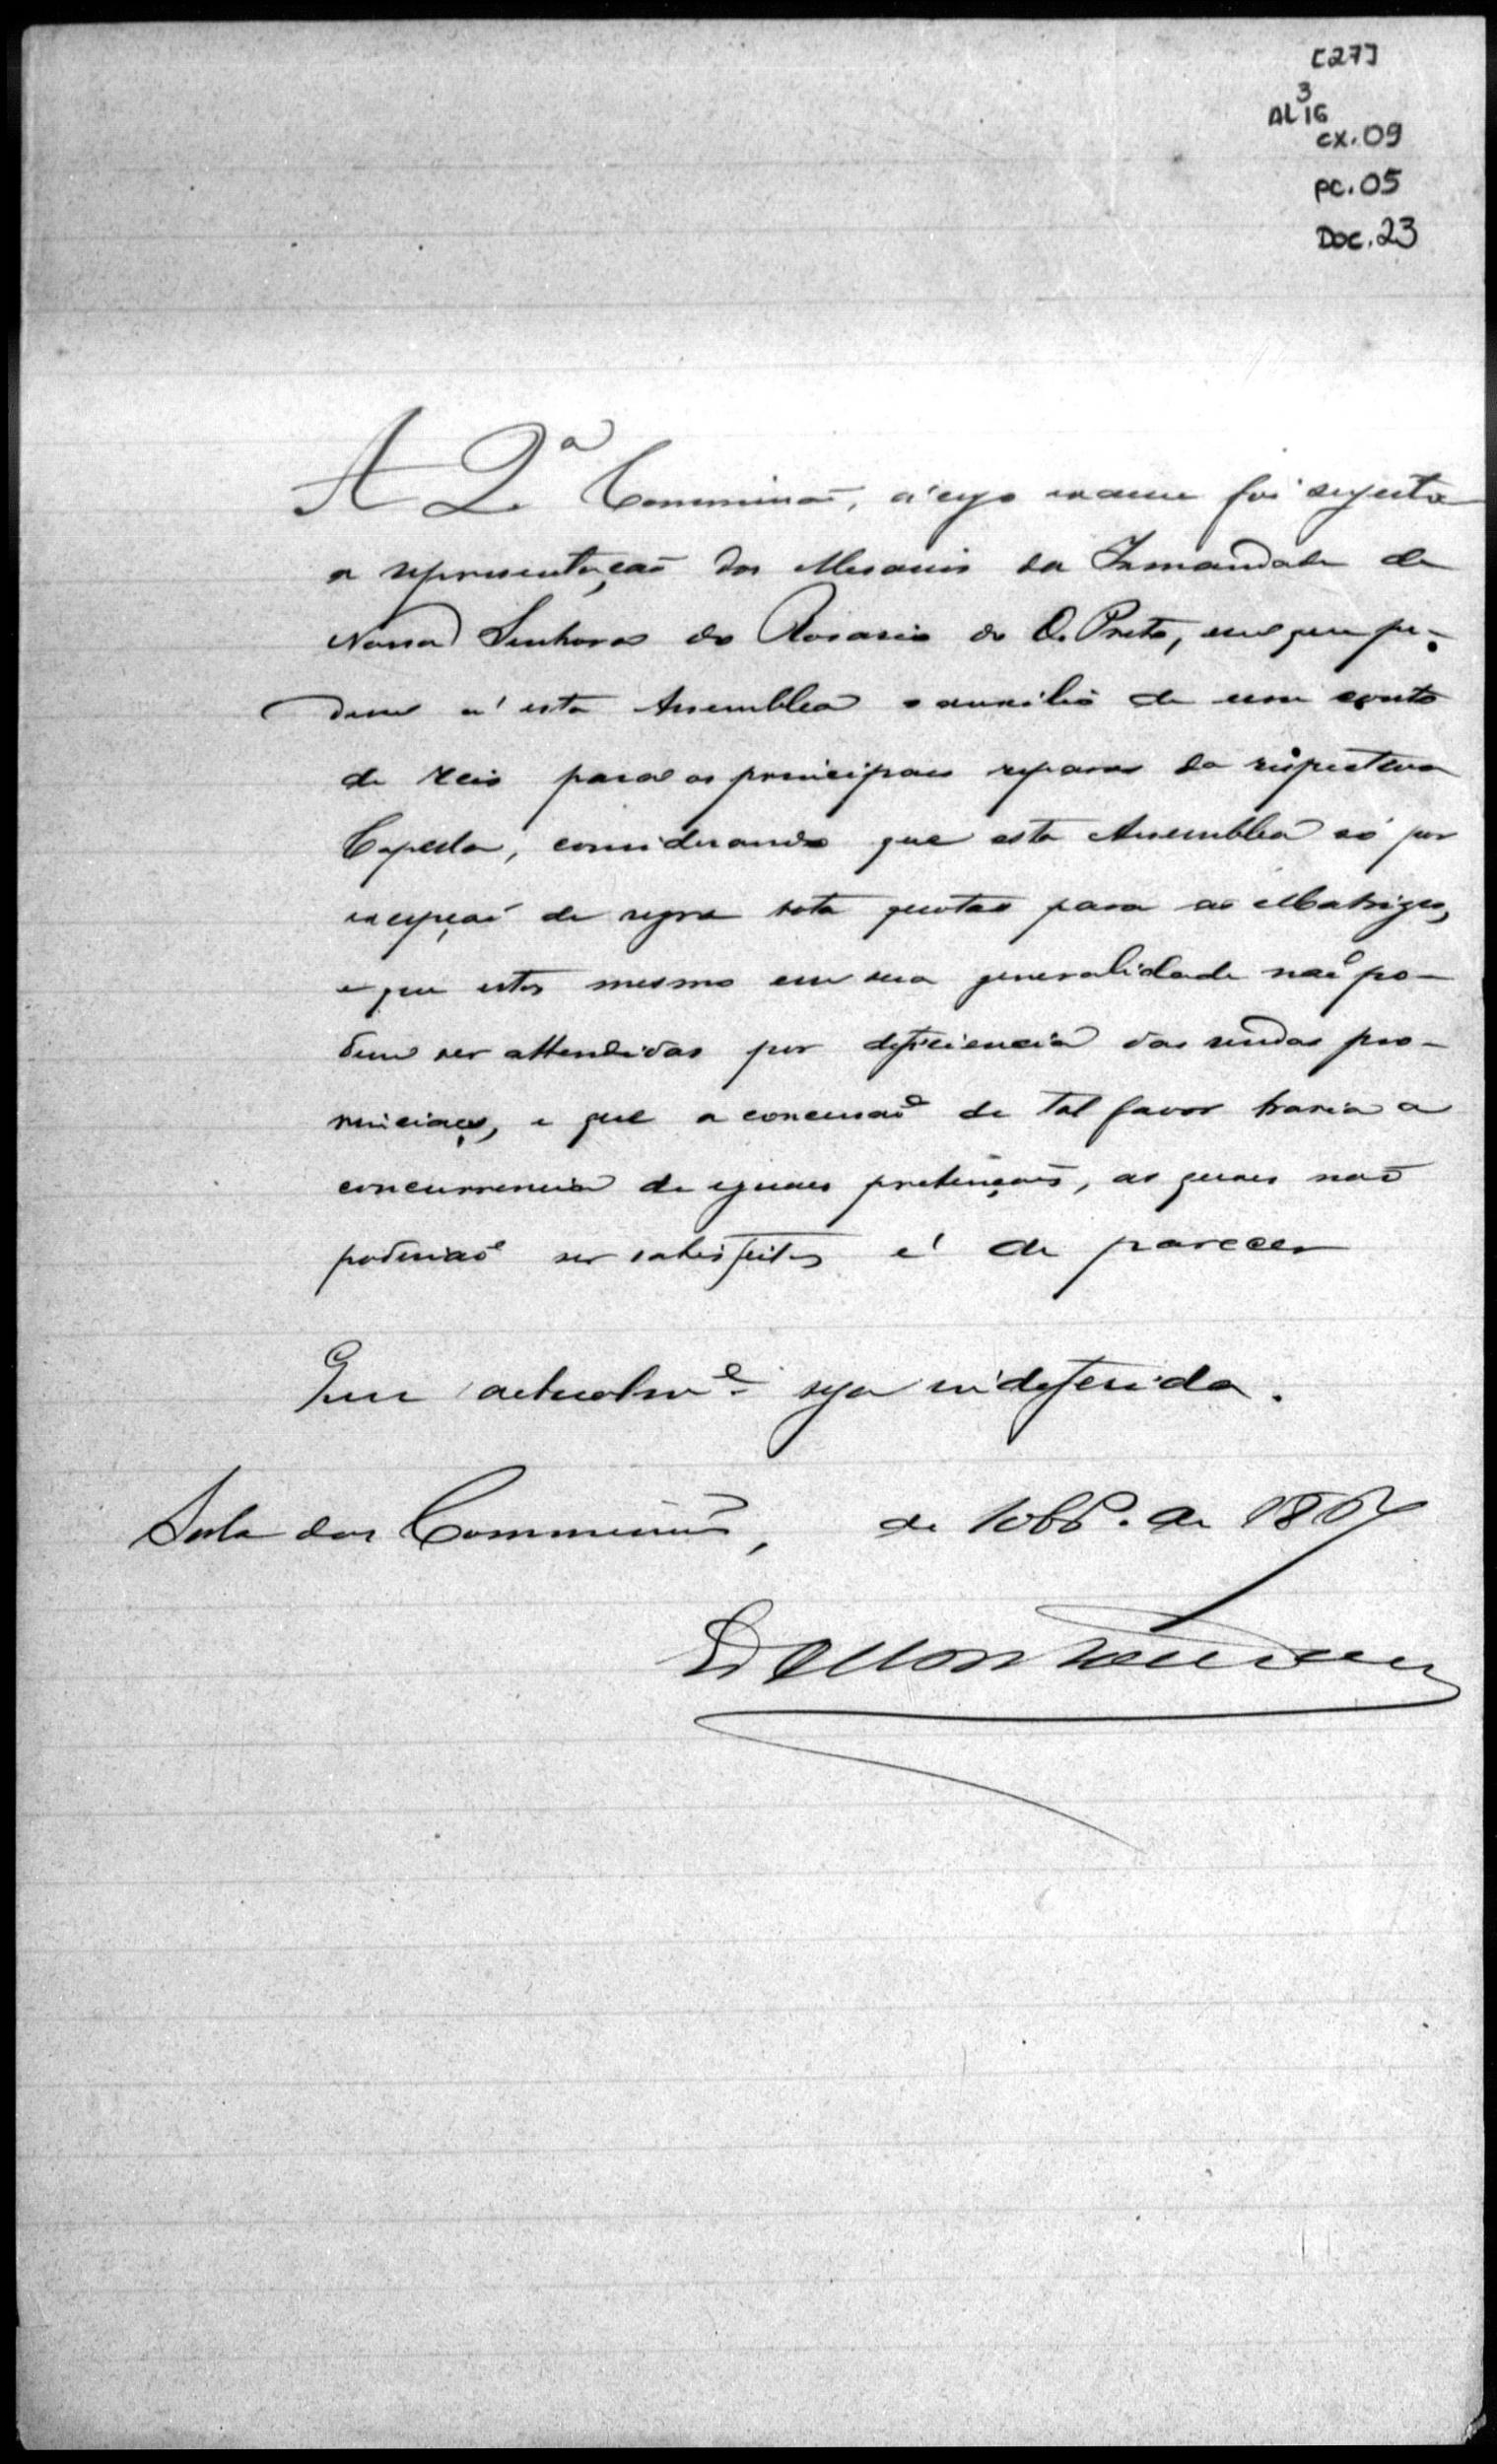 [27]
3
AL 16
cx. 09
pc. 05
Doc. 23
A 2.ª Commissaõ, á cujo exame foi sujeita
a representaçaõ dos Mesarios da Irmandade de
Nossa Senhora do Rosario do O. Preto, em que pe-
dem á esta Assemblea o auxilio de um conto
de reis para os principaes reparos da respectiva
Capella, considerando que esta Assemblea só por
excepçaõ de regra vota quotas para as Matrizes,
e que estas mesmo em sua generalidade naõ po-
dem ser attendidas por deficiencia das rendas pro-
vinciaes, e que a concessaõ de tal favor traria a
concurrencia de iguaes pretençoẽs, as quaes naõ
poderiaõ ser satisfeitas é de parecer
Que actualm.e seja indeferida.
Sala das Commissoẽs, de 10br.o de 1867